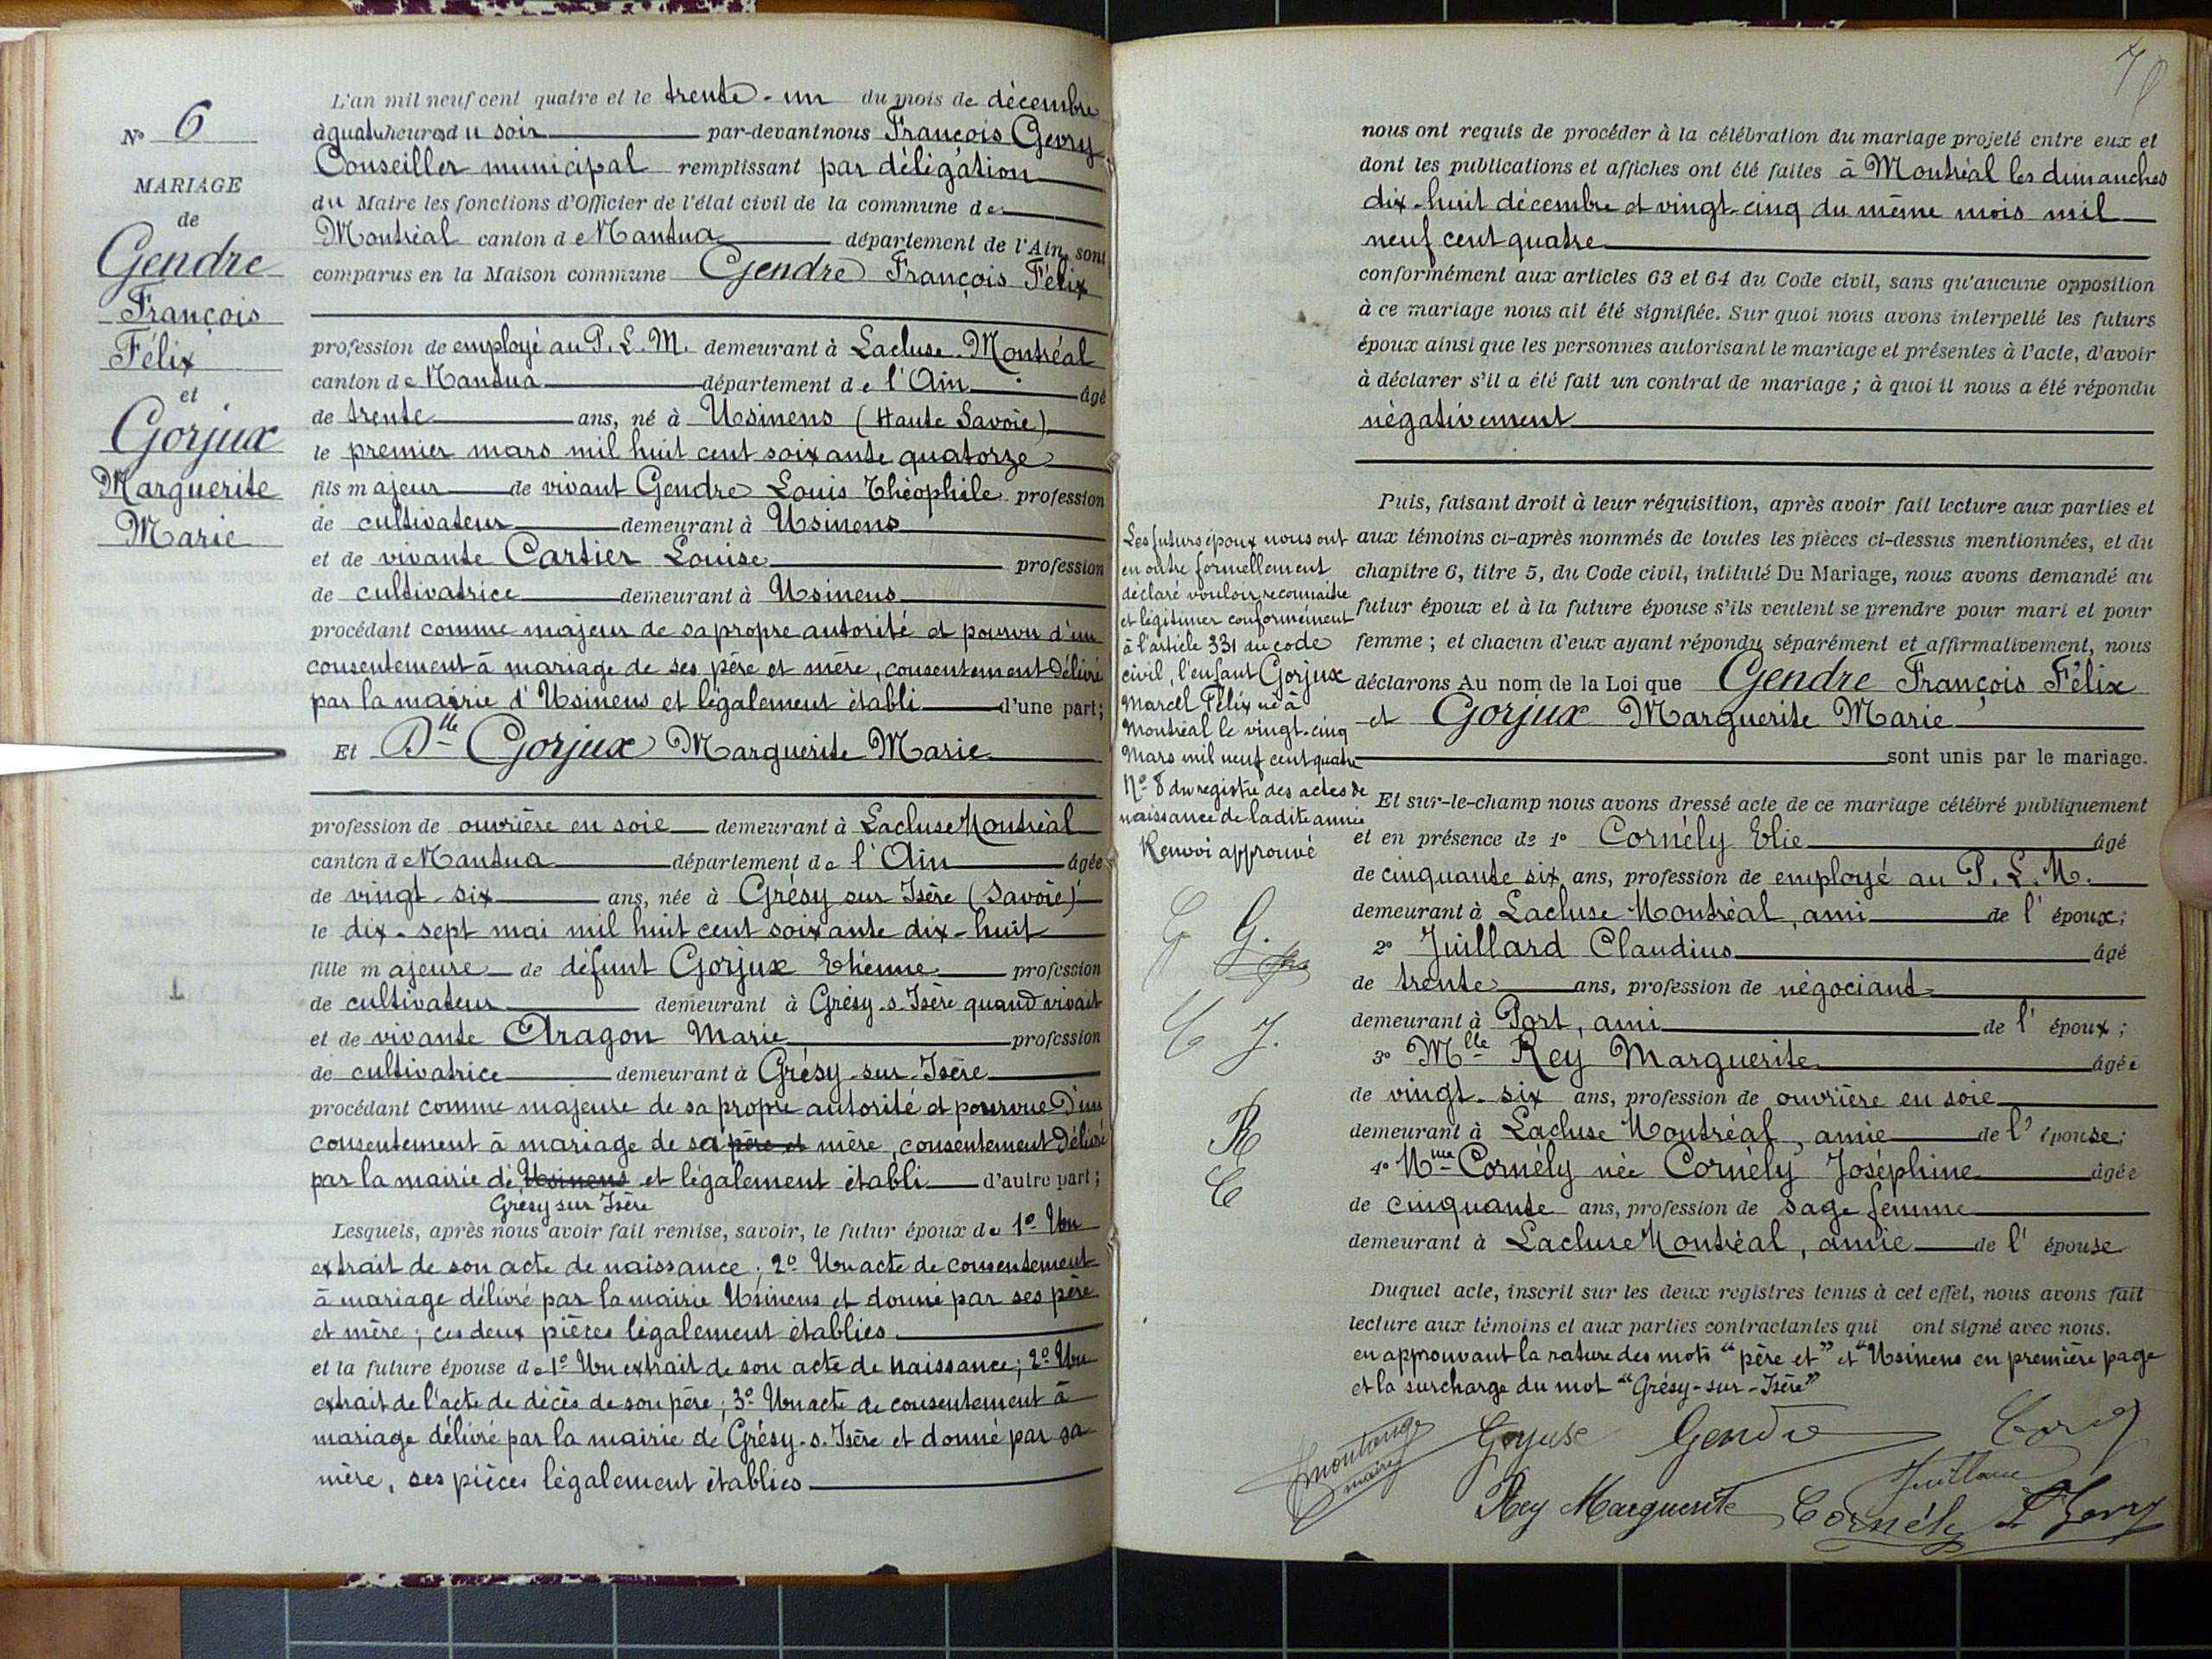 N° 6
MARIAGE
de
Gendre
François
Félix
et
Gorjux
Marguerite
Marie
L'an mil neuf cent quatre et le trente-un du mois de décembre
à quatre heures du soir par-devant nous François Gerry
Conseiller municipal remplissant par délégation
du Maire les fonctions d'Officier de l'état civil de la commune de
Montréal canton de Nantua département de l'Ain, sont
comparus en la Maison commune Gendre François Félix
profession de employé au P. L. M. demeurant à Lacluse-Montréal
canton de Nantua département de l'Ain âgé
de trente ans, né à Usinens (Haute Savoie)
le premier mars mil huit cent soixante quatorze
fils majeur de vivant Gendre Louis Théophile profession
de cultivateur demeurant à Usinens
et de vivante Cartier Louise profession
de cultivatrice demeurant à Usinens
procédant comme majeur de sa propre autorité et pourvu d'un
consentement à mariage de ses père et mère, consentement délivré
par la mairie d'Usinens et légalement établi d'une part;
Et Dlle Gorjux Marguerite Marie
profession de ouvrière en soie demeurant à Lacluse Montréal
canton de Nantua département de l'Ain âgée
de vingt-six ans, née à Grésy sur Isère (Savoie)
le dix-sept mai mil huit cent soixante dix-huit
fille majeure de défunt Gorjux Etienne profession
de cultivateur demeurant à Grésy-s-Isère quand vivait
et de vivante Aragon Marie profession
de cultivatrice demeurant à Grésy-sur-Isère
procédant comme majeure de sa propre autorité et pourvue d'un
consentement à mariage de sa père et mère, consentement délivré
par la mairie de Usinens et légalement établi d'autre part;
Grésy sur Isère
Lesquels, après nous avoir fait remise, savoir, le futur époux de 1° Un
extrait de son acte de naissance; 2° Un acte de consentement
à mariage délivré par la mairie Usinens et donné par ses père
et mère; ces deux pièces légalement établies
et la future épouse de 1° Un extrait de son acte de naissance; 2° Un
extrait de l'acte de décès de son père; 3° Un acte de consentement à
mariage délivré par la mairie de Grésy-s-Isère et donné par sa
mère, ses pièces légalement établies
nous ont requis de procéder à la célébration du mariage projeté entre eux et
dont les publications et affiches ont été faites à Montréal les dimanches
dix-huit décembre et vingt-cinq du même mois mil
neuf cent quatre
conformément aux articles 63 et 64 du Code civil, sans qu'aucune opposition
à ce mariage nous ait été signifiée. Sur quoi nous avons interpellé les futurs
époux ainsi que les personnes autorisant le mariage et présentes à l'acte, d'avoir
à déclarer s'il a été fait un contrat de mariage; à quoi il nous a été répondu
négativement
Puis, faisant droit à leur réquisition, après avoir fait lecture aux parties et
aux témoins ci-après nommés de toutes les pièces ci-dessus mentionnées, et du
chapitre 6, titre 5, du Code civil, intitulé Du Mariage, nous avons demandé au
futur époux et à la future épouse s'ils veulent se prendre pour mari et pour
femme; et chacun d'eux ayant répondu séparément et affirmativement, nous
déclarons Au nom de la Loi que Gendre François Félix
et Gorjux Marguerite Marie
sont unis par le mariage.
Les futurs époux nous ont
en outre formellement
déclaré vouloir reconnaître
et légitimer conformément
à l'article 331 du code
civil, l'enfant Gorjux
Marcel Félix né à
Montréal le vingt-cinq
Mars mil neuf cent quatre
N° 8 du registre des actes de
naissance de ladite année
Renvoi approuvé
G G.
C J.
R
C
Et sur-le-champ nous avons dressé acte de ce mariage célébré publiquement
et en présence de 1° Cornély Elie âgé
de cinquante six ans, profession de employé au P. L. M.
demeurant à Lacluse Montréal, ami de l'époux;
2° Juillard Claudius âgé
de trente ans, profession de négociant
demeurant à Port, ami de l'époux;
3° Mlle Rey Marguerite âgée
de vingt-six ans, profession de ouvrière en soie
demeurant à Lacluse Montréal, amie de l'épouse;
4° Mme Cornély née Cornély Joséphine âgée
de cinquante ans, profession de sage femme
demeurant à Lacluse Montréal, amie de l'épouse
Duquel acte, inscrit sur les deux registres tenus à cet effet, nous avons fait
lecture aux témoins et aux parties contractantes qui ont signé avec nous.
en approuvant la rature des mots "père et" et "Usinens en première page
et la surcharge du mot "Grésy-sur-Isère"
maire
Gorjux Gendre
Juillard
Rey Marguerite Cornély F Gerry